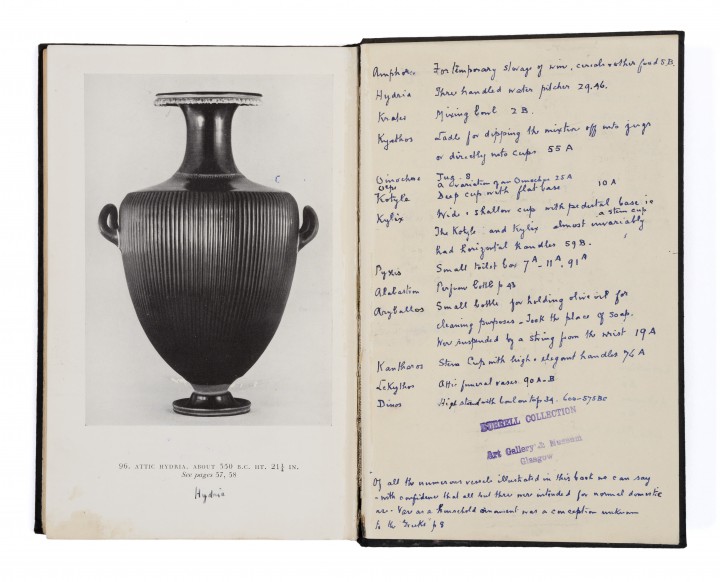 96. ATTIC HYDRIA, ABOUT 350 B.C. HT. 21¼ IN.
See pages 57, 58
Hydria
Amphora For temporary storage of wine, cereals & other food 5,B.
Hydria Three handled water pitcher 29.46.
Krater Mixing bowl 2 B.
Kyathos Ladle for dipping the mixture off into jugs
or directly into cups 55 A
Oinochoe Jug. 8.
Olpe a variation of an Oinochoe 25 A
Kotyle Deep cup with flat base 10 A
Kylix Wide & shallow cup with pedestal base ie
a stem cup
The Kotyle and Kylix almost invariably
had horizontal handles 59 B.
Pyxis Small toilet box 7A - 11A, 91A
Alabastron Perfume bottle p 43
Aryballos Small bottle for holding olive oil for
cleaning purposes - Took the place of soap.
Was suspended by a string from the wrist 19 A
Kantharos Stem Cup with high & elegant handles 76 A
Lekythos Attic funeral vases. 90 A-B
Dinos High stand with bowl on top 34. 600-575 BC
BURRELL COLLECTION
Art Gallery & Museum
Glasgow
Of all the numerous vessels illustrated in this book we can say
with confidence that all but three were intended for normal domestic
use. Vase as a household ornament was a conception unknown
to the Greeks p 8